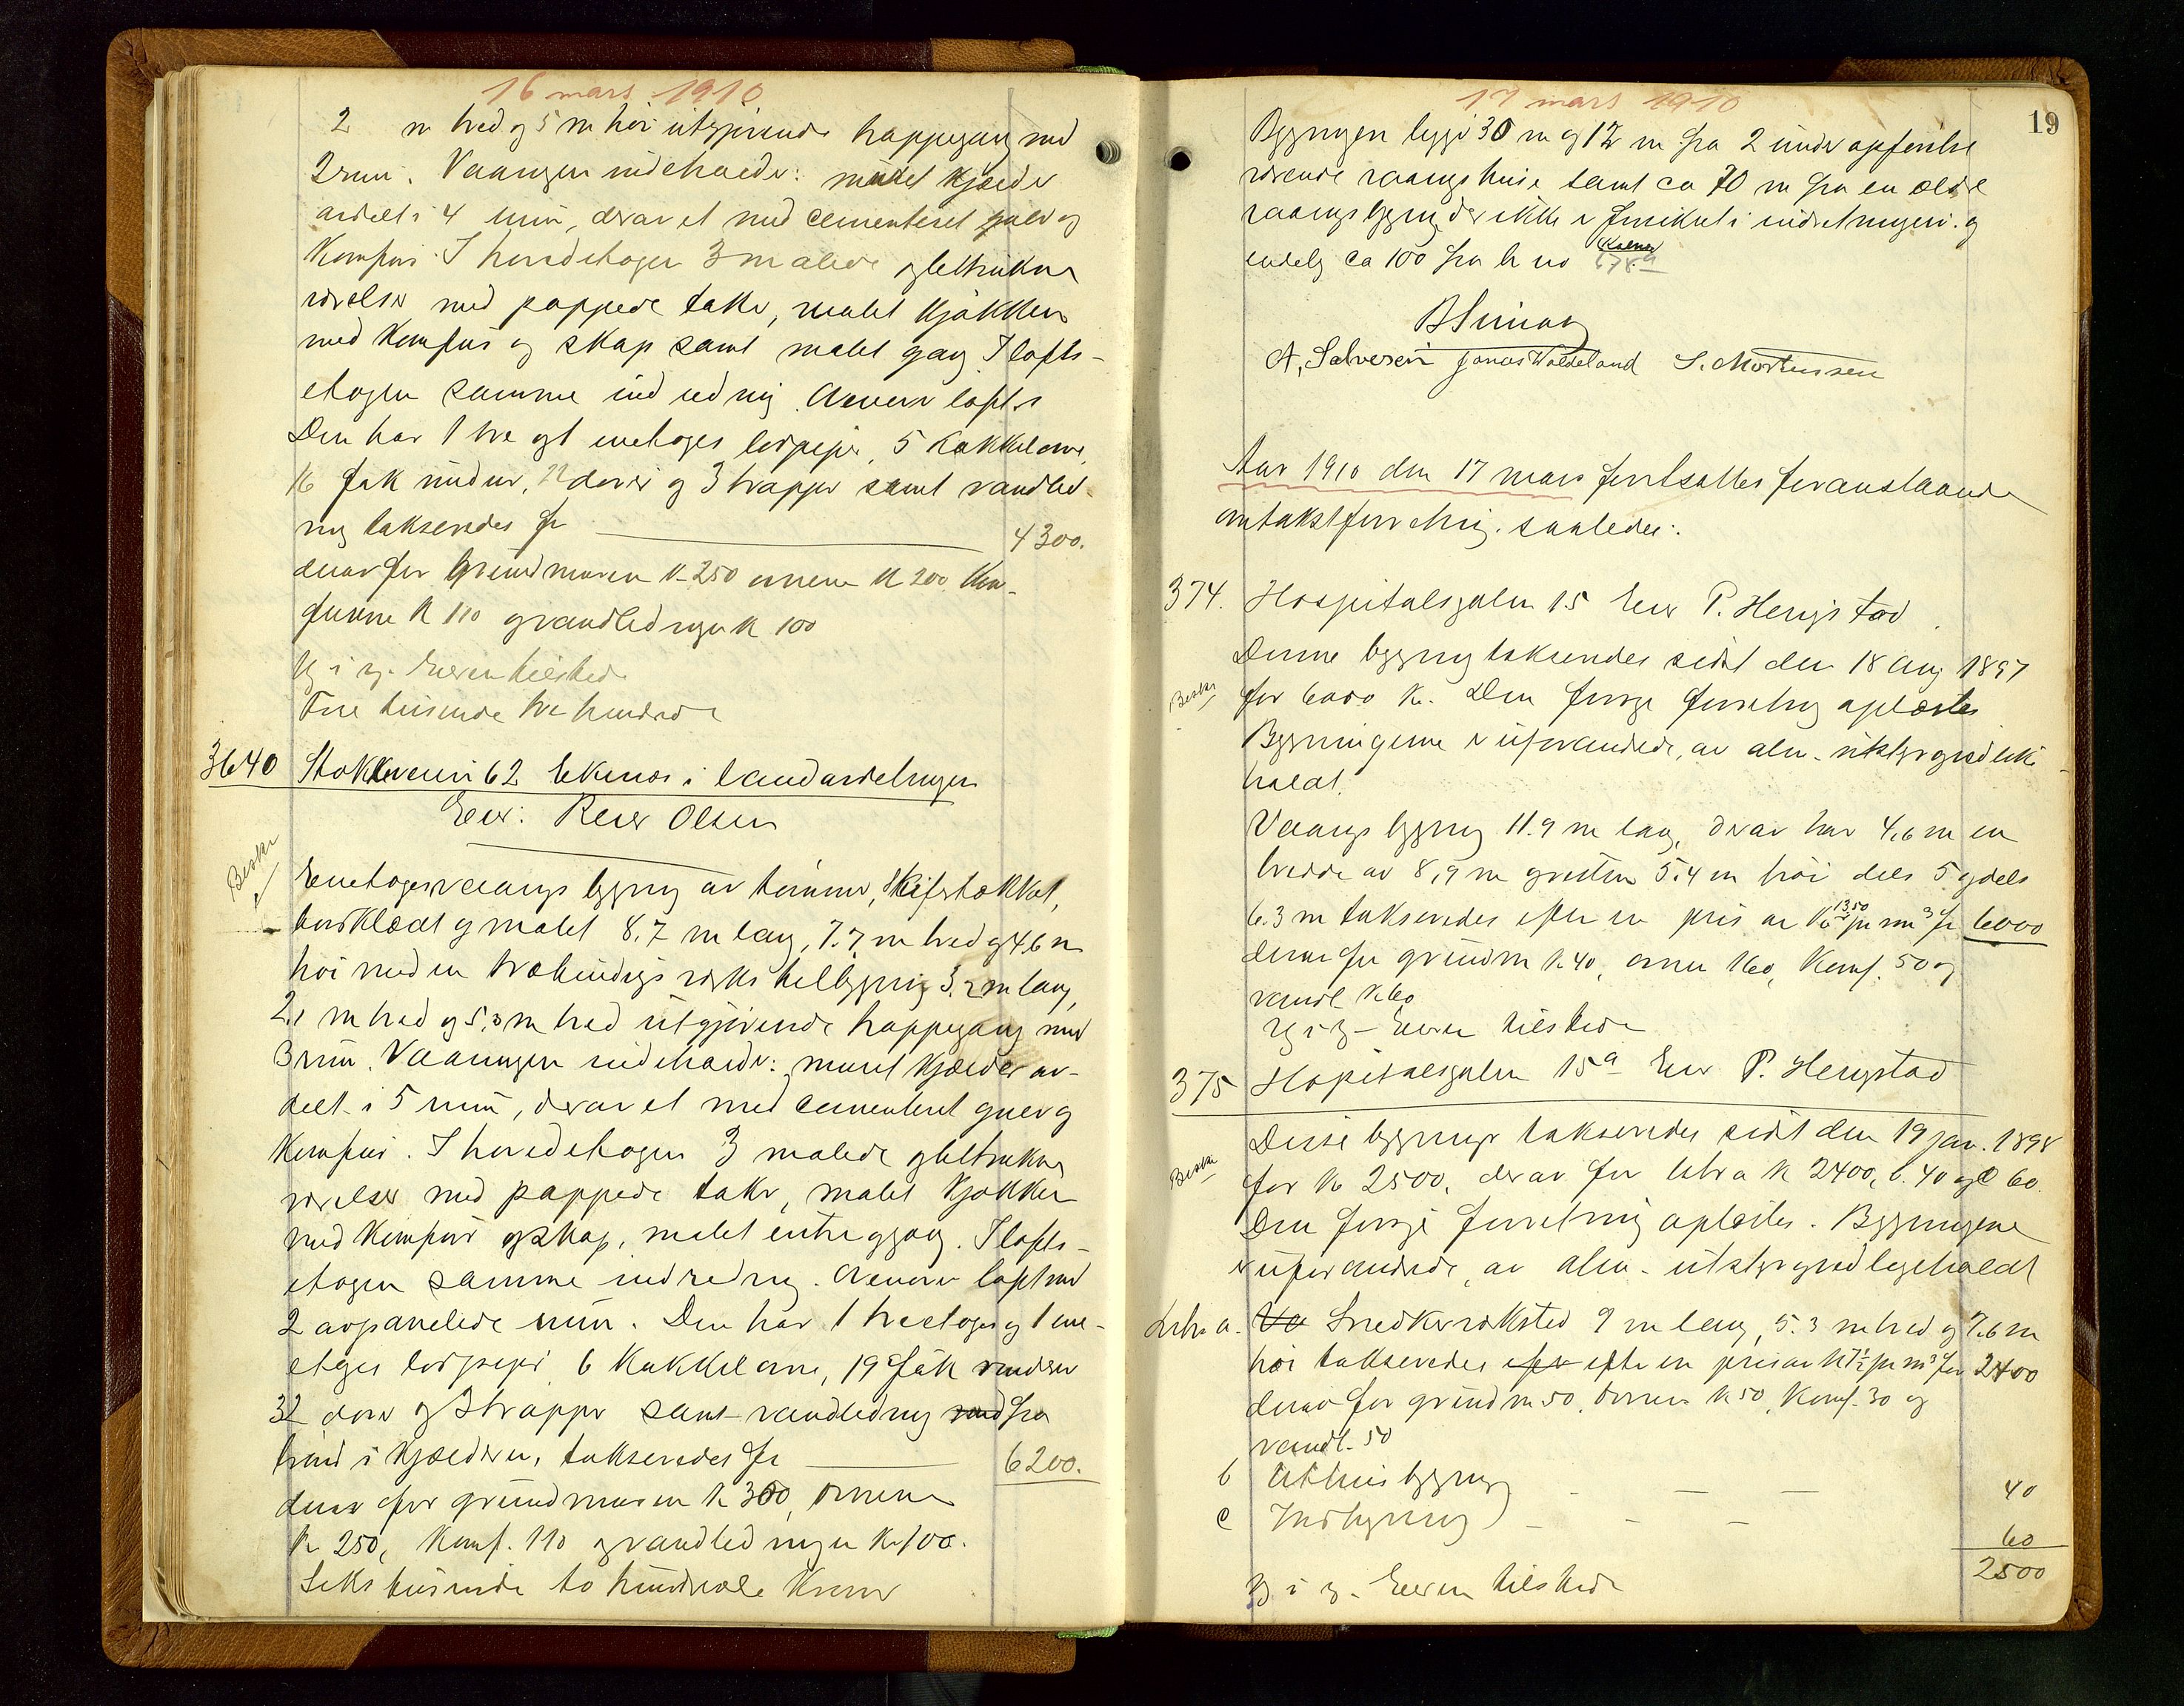 16 mars 1910
2 m bred og 5 m höi utgjörende trappegang med
2 rum. Vaaningen indeholder: muret Kjælder
avdelt i 4 rum, derav et med cementeret gulv og
Komfur. I hovedetagen 3 malede og betrukne
værelser med pappede take, malet Kjøkken
med Komfur og skap samt malet gang. I lofts-
etagen samme indredning. Øverst loft.
Den har 1 tre og 1 enetages lodpipe, 5 Kakkelovne,
16 fak vinduer, 22 dører og 3 trapper samt vandled-
ning takseredes for 4300.
derav for Grundmuren K 250 ovnene K 200 Kom-
furene K 110 og vandledningen K 100
Eieren tilstede
Fire tusinde tre hundrede
3640 Stokkaveien 62 Ekenæs i landavdelingen
Eier: Reier Olsen
Beskr
Enetages vaanings bygning av tømmer, skifertækket,
bordklædt og malet 8.7 m lang, 7.7 m bred og 4,6 m
höi med en træbindings verks tilbygning 3.2 m lang,
2.1 m bred og 5.3 m bred utgjörende trappegang med
3 rum. Vaaningen indeholder: muret Kjælder av-
delt i 5 rum, derav et med cementeret gulv og
Komfur. I hovedetagen 3 malede og betrukne
værelser med pappede take, malet Kjøkken
med Komfur og skap, malet entre og gang. I lofts-
etagen samme indredning. Øverst loft med
2 avpanelede rum. Den har 1 trestages og 1 ene-
etages lodpipe, 6 Kakkelovne, 19 fak vinduer
32 döre og 3 trapper samt vandledning fra
brönd i Kjælderen, takseredes for 6200.
derav for grundmuren K 300, ovnene
K 250, Komf. 110 og vandledningen K. 100.
Seks tusinde to hundrede Kroner
17 mars 1910
19
Bygningen ligger 30 m og 12 m fra 2 under opførelse
værende vaaningshuse samt ca 70 m fra en ældre
vaaningsbygning der ikke er forsikret i indretningen. og
endelig ca 100 fra br no 678a
A. Salvesen Jonas Waldeland S. Mortensen
Aar 1910 den 17 mars fortsattes foranstaaende
omtakstforretning. saaledes:
374. Hospitalsgaden 15 Eier P. Hengstad
Beskr
Denne bygning takseredes sidst den 18 aug 1897
for 6000 K. Den forrige forretning oplæstes
Bygningerne er uforandrede, av alm. utstyr og vedlike-
holdt.
Vaanings bygning 11.9 m lang, derav har 4,6 m en
bredde av 8,9 m og resten 5,4 m höi dels 5 og dels
6.3 m takseredes efter en pris av K 13.50 pr m3 for 6000
derav for grundm K 40, ovner 160, Komf. 50 og
vandl K 60
Eieren tilstede
375 Hospitalsgaden 15a Eier P. Hengstad
Beskr
Disse bygninger takseredes sidst den 19 jan. 1898
for K 2500, derav for litra K 2400, b. 40 og c 60.
Den forrige forretning oplæstes. Bygningerne
er uforandrede, av alm. utstyr og vedligeholdt
Litra a. Snedkerverksted 9 m lang, 5.3 m bred og 7.6 m
höi takseredes efter en pris av K 7½ pr m3 for 2400
derav for grundm 50, ovner K 50, Komf. 30 og
vandl. 50
b Uthusbygning - - - 40
c Indbygning - - - 60
2500
Eieren tilstede